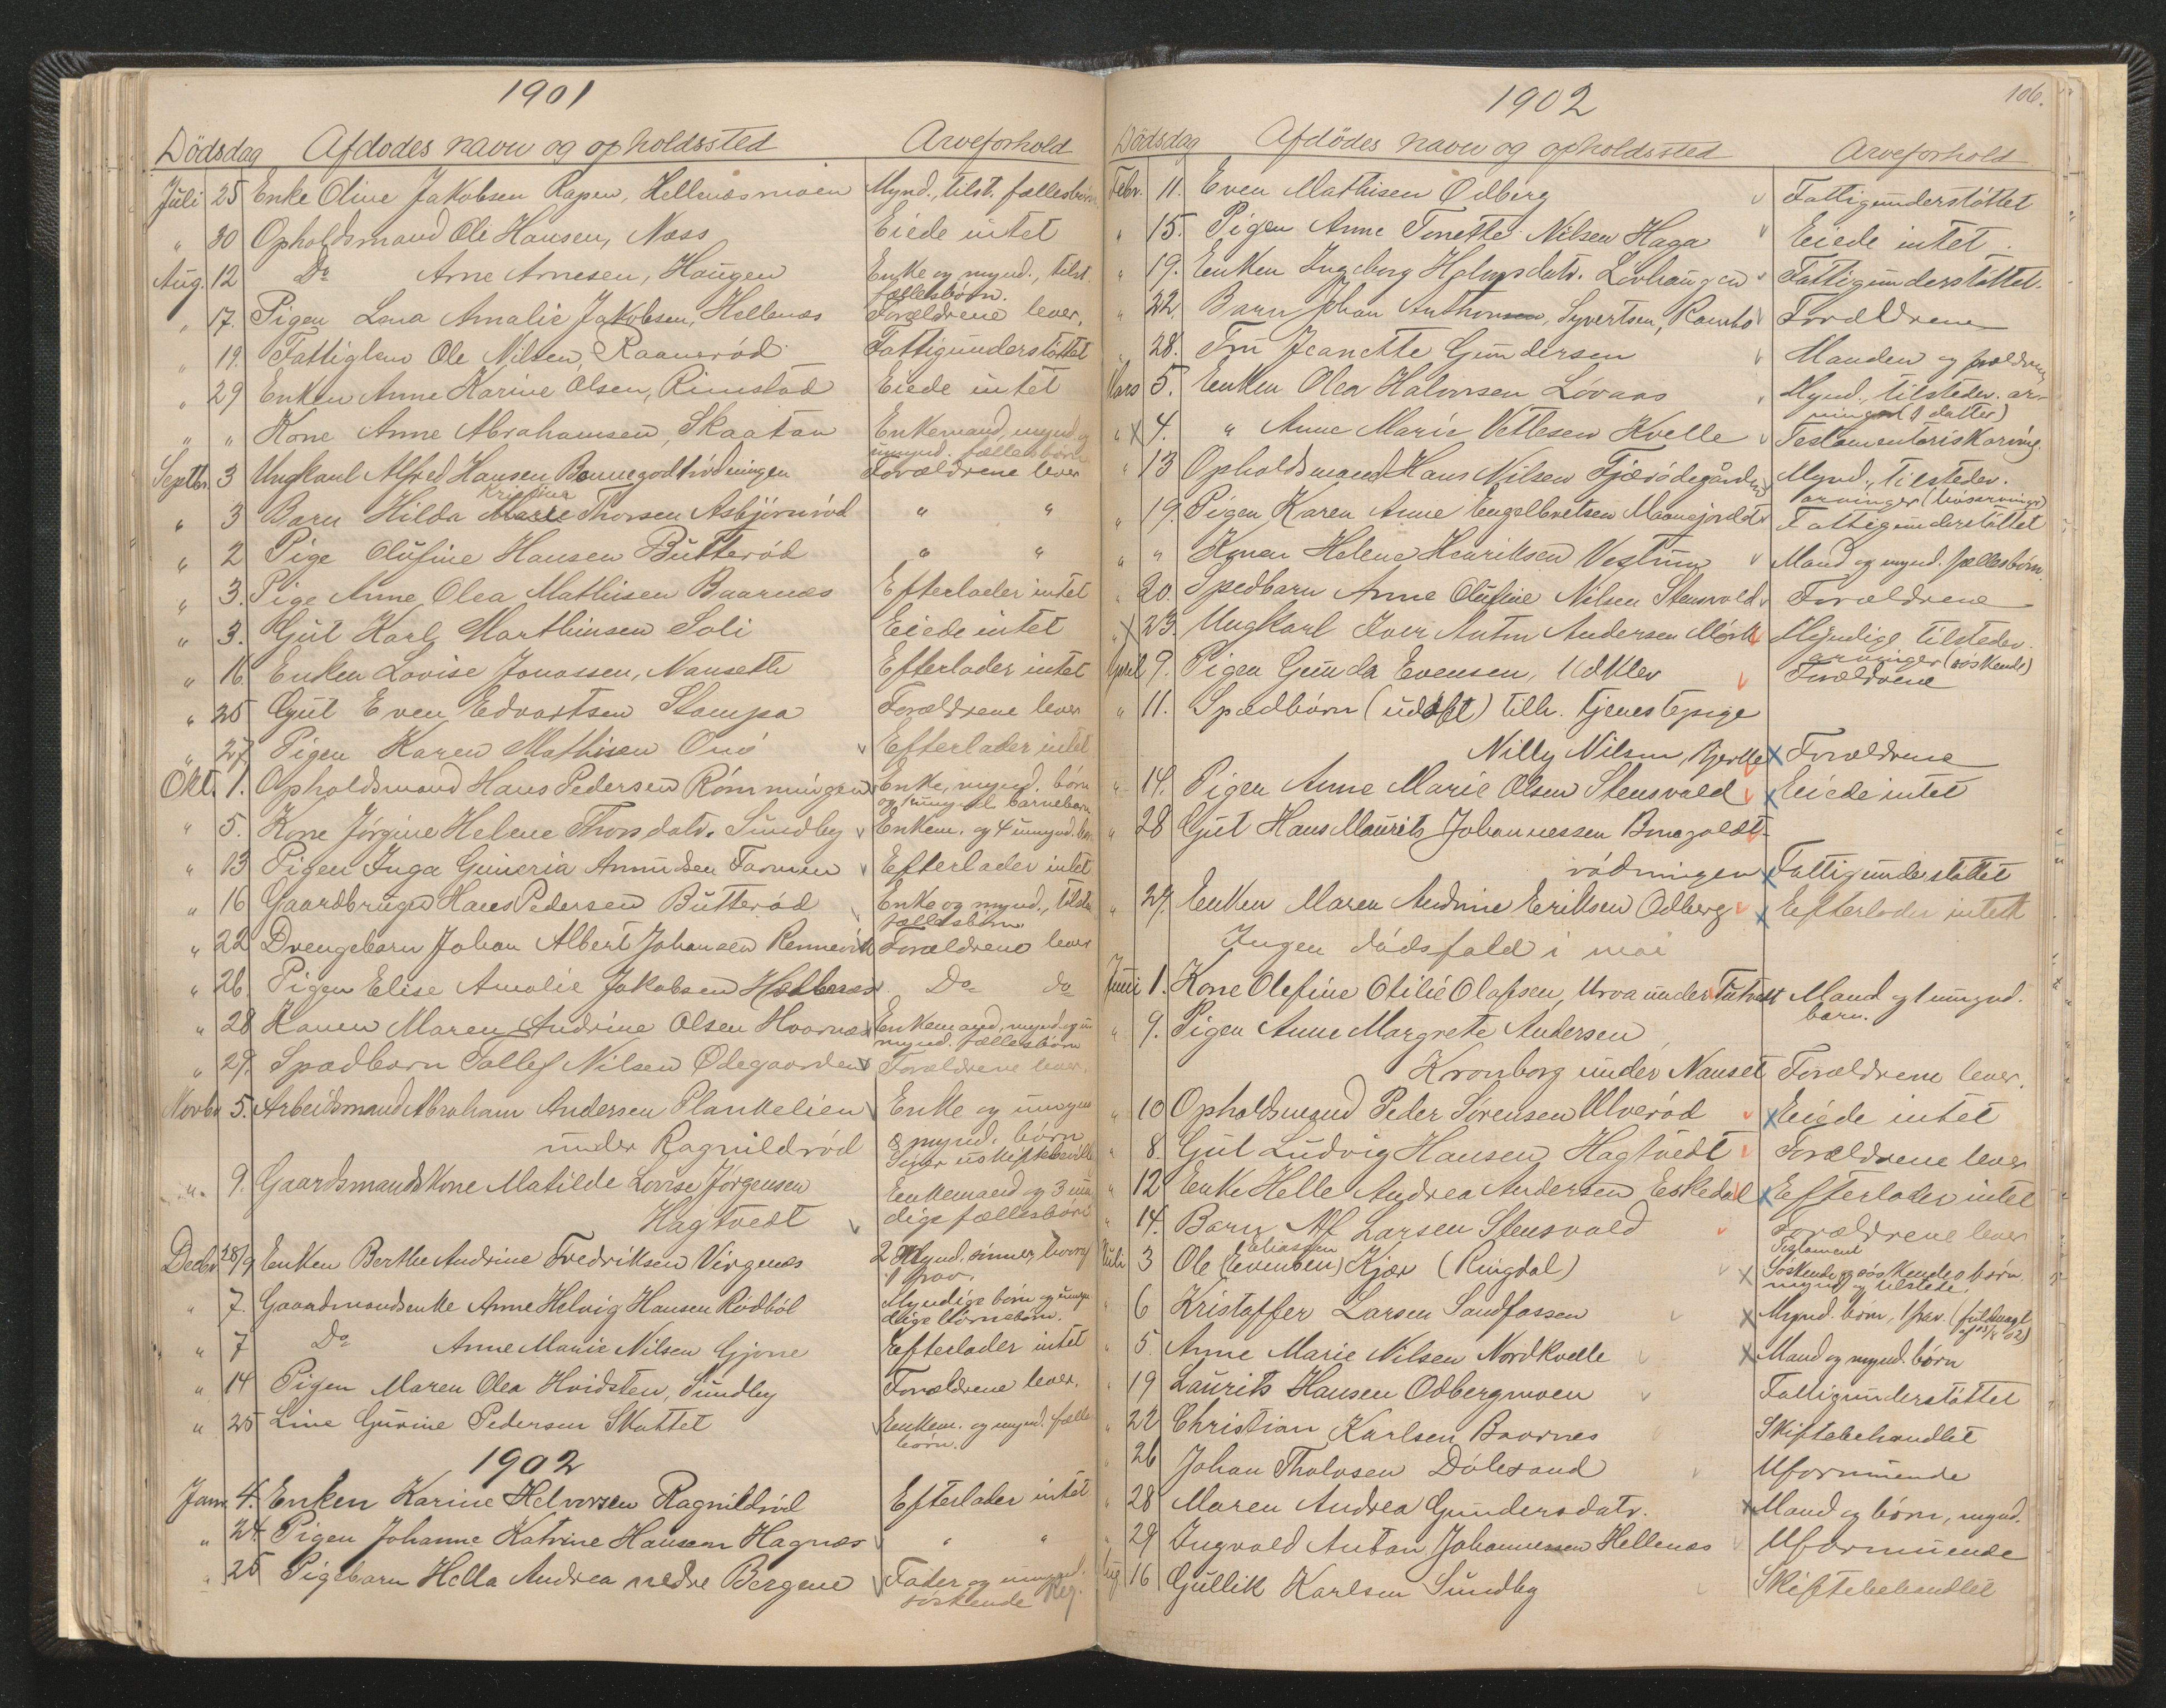 1901
Dödsdag Afdödes navn og opholdssted Arveforhold
Juli 25 Enke Oline Jakobsen Rapen, Hellenæsmoen Mynd., tilst. fællesbörn
" 30 Opholdsmand Ole Hansen, Næss Eiede intet
Aug. 12 Do Arne Arnesen, Haugen Enke og mynd., tilst.
fællesbörn.
" 17. Pigen Lena Amalie Jakobsen, Hellenæs Forældrene lever.
" 19. Fattiglem Ole Nilsen, Raanerød Fattigunderstöttet
" 29 Enken Anne Karine Olsen, Rimstad Eiede intet
" " Kone Anne Abrahamsen, Skaatan Enkemand, mynd. og
umynd. fællesbörn
Septbr. 3 Ungkarl Alfred Hansen Bonnegodtrödningen Forældrene lever
Kristine
" 3 Barn Hilda Marie Thorsen Asbjörnröd " "
" 2 Pige Olufine Hansen Butteröd " "
" 3. Pige Anne Olea Mathisen Baarnæs Efterlader intet
" 3. Gut Karl Marthinsen Soli Eiede intet
" 16. Enken Lovise Jonassen, Nanseth Efterlader intet
" 25 Gut Even Edvartsen Stampa Forældrene lever
" 27. Pigen Karen Mathisen Onö Efterlader intet
Okt. 1. Opholdsmand Hans Pedersen Römmingen Enke, mynd. börn
og 1 umynd. barnebarn
" 5. Kone Jörgine Helene Thorsdatr. Sundby Enkem. og 4 umynd. börn
" 13 Pigen Inga Guneria Amundsen Farmen Efterlader intet
" 16 Gaardbruger Hans Pedersen Butteröd Enke og mynd., tilst.
fællesbörn
" 22 Drengebarn Johan Albert Johansen Rennevik Forældrene lever
" 26. Pigen Elise Amalie Jakobsen Hellenæs Do do
" 28 Konen Maren Andrine Olsen Hvarnæs Enkemand, mynd. og u
mynd. fællesbörn
" 29. Spædbarn Tallef Nilsen Ödegaarden Forældrene lever.
Novbr. 5. Arbeidsmand Abraham Andersen Plankelien Enke og umynd
under Ragnildröd & mynd. börn
" 9. Gaardmandskone Matilde Lovise Jörgensen Enkemand og 3 umyn
Hagtvedt dige fællesbörn
Decbr. 28/9 Enken Berthe Andrine Fredriksen Virgenæs 2 Mynd. sönner, hvoraf
1 frav.
" 7. Gaardmandsenke Anne Helvig Hansen Rödböl Myndige börn og umyn
dige börnebörn.
" 7 Do Anne Marie Nilsen Gjone Efterlader intet
" 14 Pigen Maren Olea Hvidsten, Sundby Forældrene lever.
" 25 Line Gurine Pedersen Skattet Enkem. og mynd. fælles
börn.
1902
Janr. 4. Enken Karine Helvorsen Ragnildröd Efterlader intet
" 24. Pigen Johanne Katrine Hansen Hagnæs " "
" 25 Pigebarn Hella Andrea nedre Bergene Fader og umynd.
söskende
1902 106.
Dödsdag Afdödes navn og opholdssted Arveforhold
Febr. 11. Even Mathisen Odberg Fattigunderstöttet
" 15. Pigen Anne Tonette Nilsen Haga Eiede intet.
" 19. Enken Ingeborg Holmsdatr. Lövhaugen Fattigunderstöttet.
" 22. Barn Johan Anthonsen, Syvertsen, Rambö Forældrene
" 28. Fru Jeanette Gundersen Manden og forældrene
Mars 5. Enken Olea Halvorsen Lövaas Mynd., tilstedev. ar-
vinger (1 datter)
" 4. " Anne Marie Vettesen Kvelle Testamentarisk arving.
" 13 Opholdsmand Hans Nilsen Fjærödegården Mynd., tilstedev.
arvinger (livsarvinger)
" 19. Pigen Karen Anne Engelbretsen Maanejordet Fattigunderstöttet
" " Konen Helene Henriksen Vestrum Mand og mynd. fællesbörn.
" 20. Spedbarn Anne Olufine Nilsen Stensvold Forældrene
" 23. Ungkarl Iver Anton Andersen Mörk Myndige tilstedev.
arvinger (söskende)
April 9. Pigen Gunda Evensen, Udklev Forældrene
" 11. Spædbörn (udöbt) tilh. tjenestepige
Nilly Nilsen, Bjerke Forældrene
" 14. Pigen Anne Marie Olsen Stensvold Eiede intet
" 28 Gut Hans Maurits Johannessen Bonegoldt-
rödningen Fattigunderstöttet
" 29. Enken Maren Andrine Eriksen Odberg Efterlader intet
Ingen dödsfald i mai
Juni 1. Kone Olefine Otilie Olafsen, Urva under Tutvedt Mand og 1 umynd.
barn.
" 9. Pigen Anne Margrete Andersen
Kronborg under Nauset Forældrene lever.
" 10 Opholdsmand Peder Sörensen Ulveröd Eiede intet
" 8. Gut Ludvig Hansen Hagtvedt Forældrene lever
" 12 Enke Helle Andrea Andersen Eskedal Efterlader intet
" 14. Barn Alf Larsen Stensvold Forældrene lever
Eliassen Testament
Juli 3 Ole (Evensen) Kjær (Ringdal) Söskende og söskendes börn.
mynd. og tilstede.
" 6 Kristoffer Larsen Sandfossen Mynd. börn, 1 frav. (fuldmagt
" 5. Anne Marie Nilsen Nordkvelle Mand og mynd. börn
" 19 Laurits Hansen Odbergmoen Fattigunderstöttet
" 22 Christian Karlsen Baarnes Skiftebehandlet
" 26 Johan Tholvsen Dölesand Uformuende
" 28 Maren Andrea Gundersdatr. Mand og börn, mynd.
" 29 Ingvald Anton Johannessen Hellenæs Uformuende
Aug 16 Gullik Karlsen Sundby Skiftebehandlet